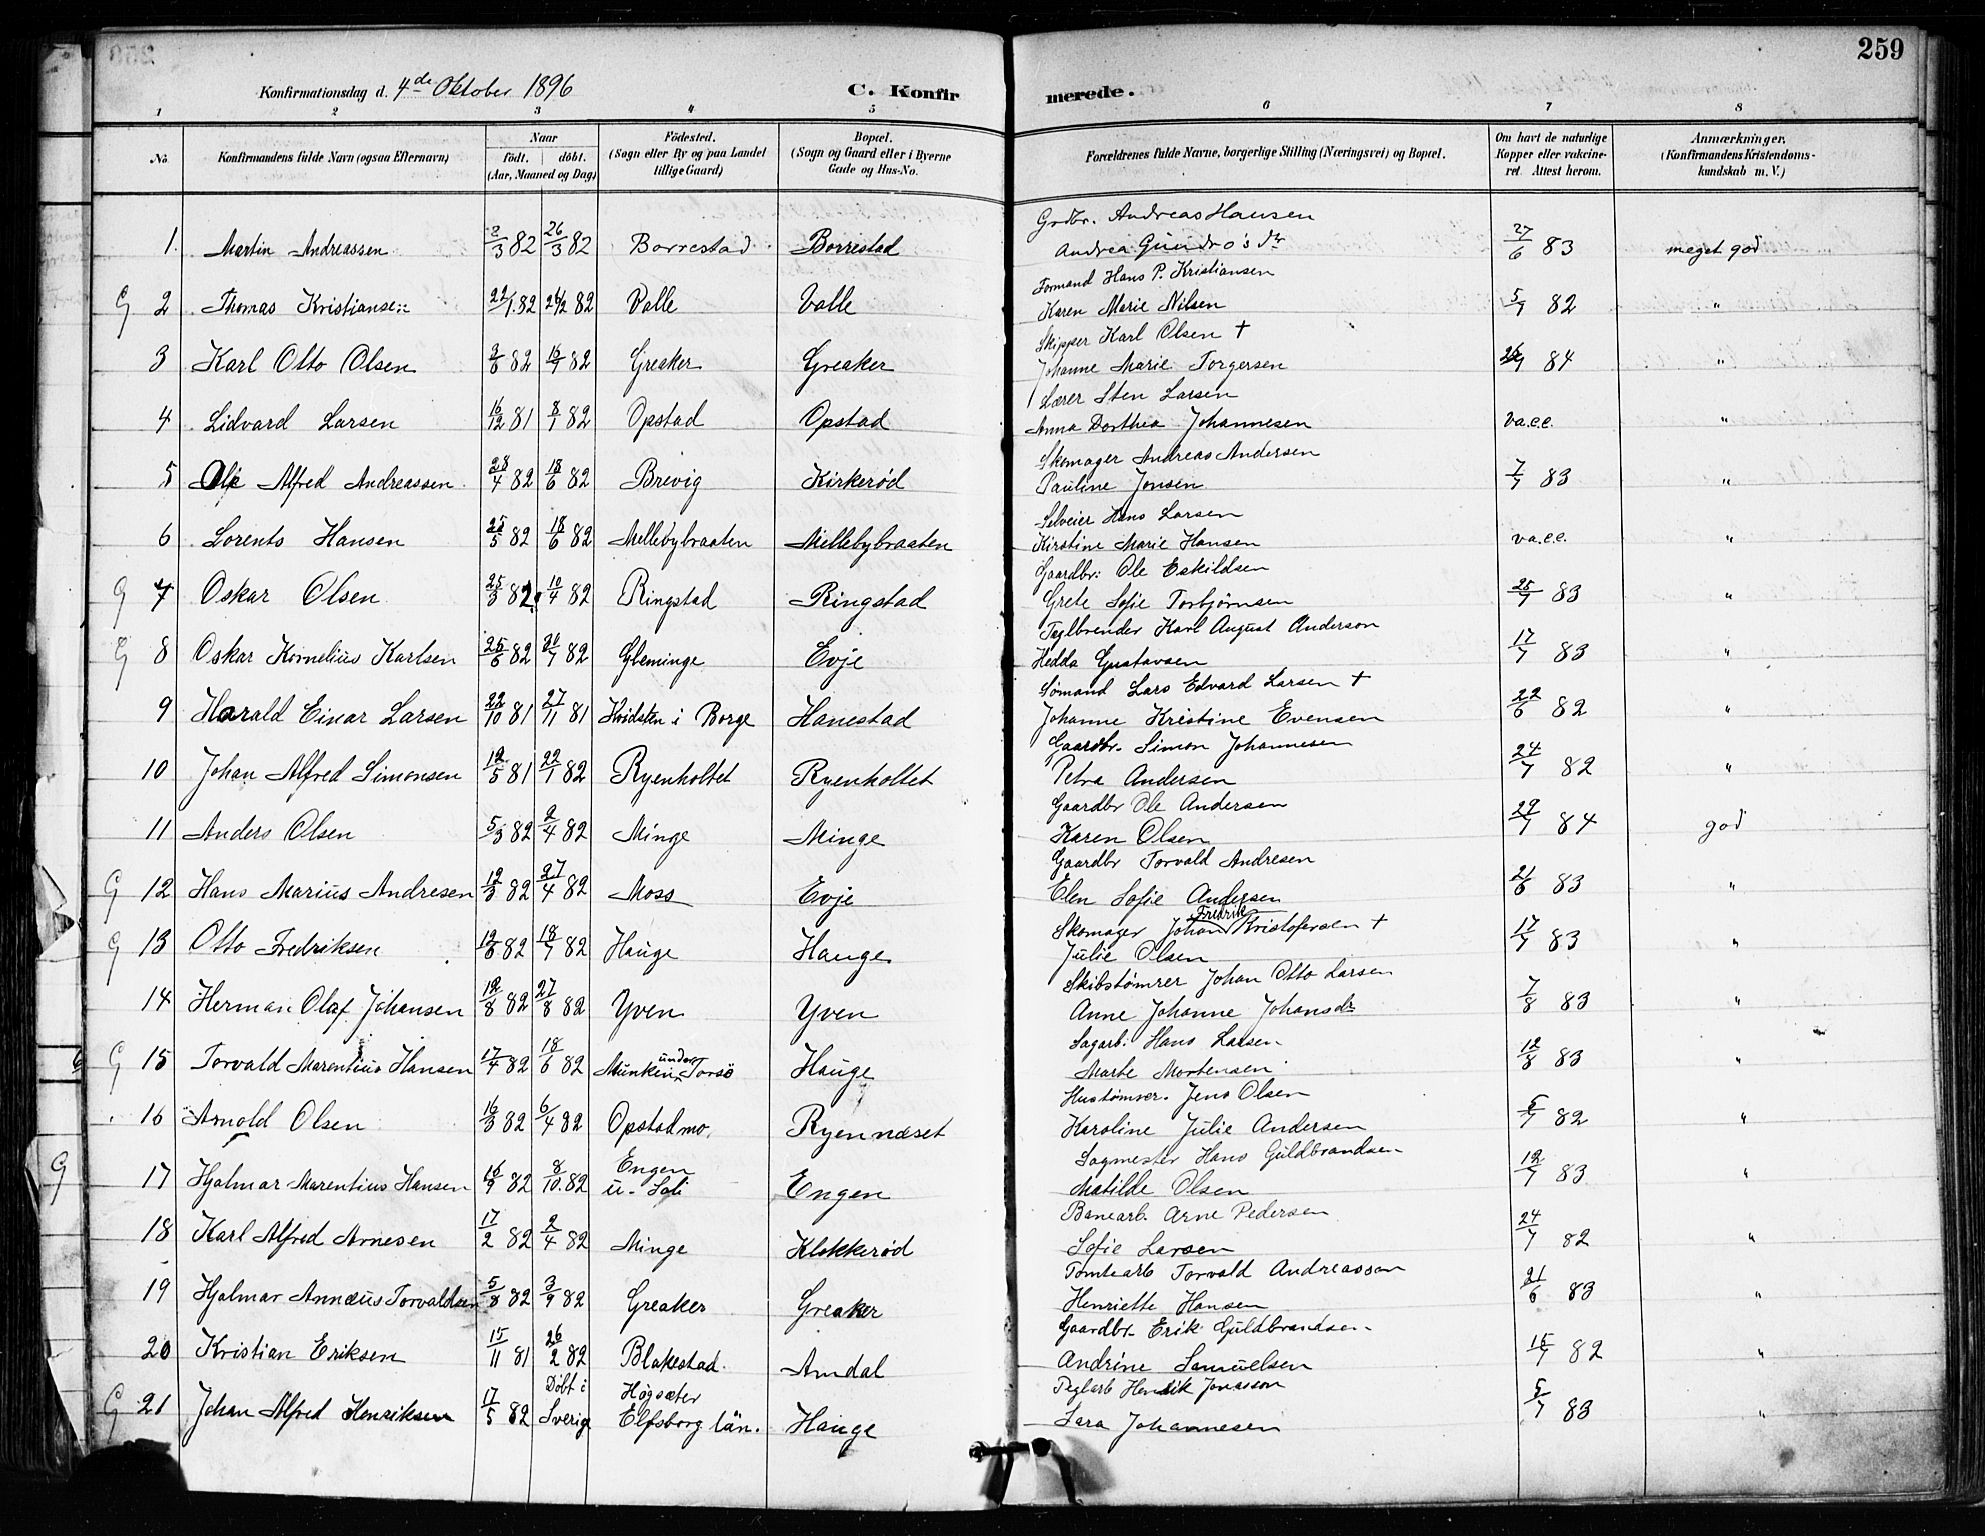 259
Konfirmationsdag d. 4de Oktober 1896
C. Konfirmerede.
1 2 3 4 5 6 7 8
No. | Konfirmandens fulde Navn (ogsaa Efternavn) | Naar født. | døbt. (Aar, Maaned og Dag) | Födested. (Sogn eller By og paa Landet tillige Gaard) | Bopæl. (Sogn og Gaard eller i Byerne Gade og Hus-No. | Forældrenes fulde Navne, borgerlige Stilling (Næringsvei) og Bopæl. | Om havt de naturlige Kopper eller vakcineret. Attest herom. | Anmærkninger, (Konfirmandens Kristendomskundskab m. V.)
1. Martin Andreassen 2/3 82 26/3 82 Borrestad Borrestad Grdbr. Andreas Hansen
Andrea Gundro's dtr 27/6 83 meget god
G 2 Thomas Kristiansen 22/1 82 26/2 82 Valle Valle Formand Hans P. Kristiansen
Karen Marie Nilsen 5/7 82 "
3 Karl Otto Olsen 2/6 82 16/7 82 Greaker Greaker Skipper Karl Olsen †
Johanne Marie Torgersen 26/7 84 "
4 Lidvard Larsen 16/12 81 8/1 82 Opstad Opstad Lærer Sten Larsen
Anna Dorthea Johannesen va.c.c. "
5 Ole Alfred Andreassen 28/4 82 18/6 82 Brevig Kirkerød Skomager Andreas Andersen
Pauline Jonsen 7/7 83 "
6 Lorents Hansen 25/5 82 18/6 82 Mellebybraaten Mellebybraaten Selveier Hans Larsen
Kirstine Marie Hansen va.c.c. "
G 7 Oskar Olsen 25/3 82 10/4 82 Ringstad Ringstad Gaardbr: Ole Eskildsen
Grete Sofie Torbjørnsen 25/7 83 "
G 8 Oskar Kornelius Karlsen 25/6 82 30/7 82 Gleminge Evje Teglbrender Karl August Anderson
Hedda Gustavsen 17/7 83 "
9 Harald Einar Larsen 22/10 81 27/11 81 Hvidsten i Borge Hanestad Sømand Lars Edvard Larsen †
Johanne Kristine Evensen 22/6 82 "
10 Johan Alfred Simonsen 12/5 81 22/1 82 Ryenholtet Ryenholtet Gaardbr. Simon Johannesen
Petra Andersen 24/7 82 "
11 Anders Olsen 5/3 82 2/4 82 Minge Minge Gaardbr Ole Andersen
Karen Olsen 29/7 84 god
G 12 Hans Marius Andresen 12/3 82 27/4 82 Moss Evje Gaardbr Torvald Andresen
Elen Sofie Andersen 21/6 83 "
G 13 Otto Fredriksen 12/6 82 18/7 82 Hauge Hauge Skomager Johan Fredrik Kristofersen †
Julie Olsen 17/7 83 "
14 Herman Olaf Johansen 12/8 82 27/8 82 Yven Yven Skibstømrer Johan Otto Larsen
Anne Johanne Johansdr 7/8 83 "
G 15 Torvald Marentius Hansen 17/4 82 18/6 82 Munken under Torsø Hauge Sagarb. Hans Larsen
Marte Mortensen 12/8 83 "
16 Arnold Olsen 16/3 82 6/4 82 Opstadmo. Ryennæset Hustømrer. Jens Olsen
Karoline Julie Andersen 5/7 82 "
G 17 Hjalmar Marentius Hansen 16/9 82 8/10 82 Engen
u. Soli Engen Sagmester Hans Guldbrandsen
Matilde Olsen 12/7 83 "
18 Karl Alfred Arnesen 17/2 82 2/4 82 Minge Klokkerød Banearb. Arne Pedersen
Sofie Larsen 24/7 82 "
19 Hjalmar Annæus Torvaldsen 5/8 82 3/9 82 Greaker Greaker Tomtearb Torvald Andreassen
Henriette Hansen 21/6 83 "
20 Kristian Eriksen 15/11 81 26/2 82 Blakestad Amdal Gaardbr. Erik Guldbrandsen
Andrine Samuelsen 15/7 82 "
G 21 Johan Alfred Henriksen 17/5 82 Döbt i
Sverige Högsæter
Elfsborg län. Hauge Teglarb Henrik Jonasson
Sara Johannesen 5/7 83 "